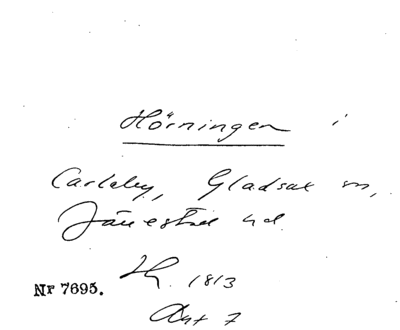 Hörningen i
Carlaby, Gladsax sn,
Järrestad hd.
1813
Nr 7695.
Akt 7